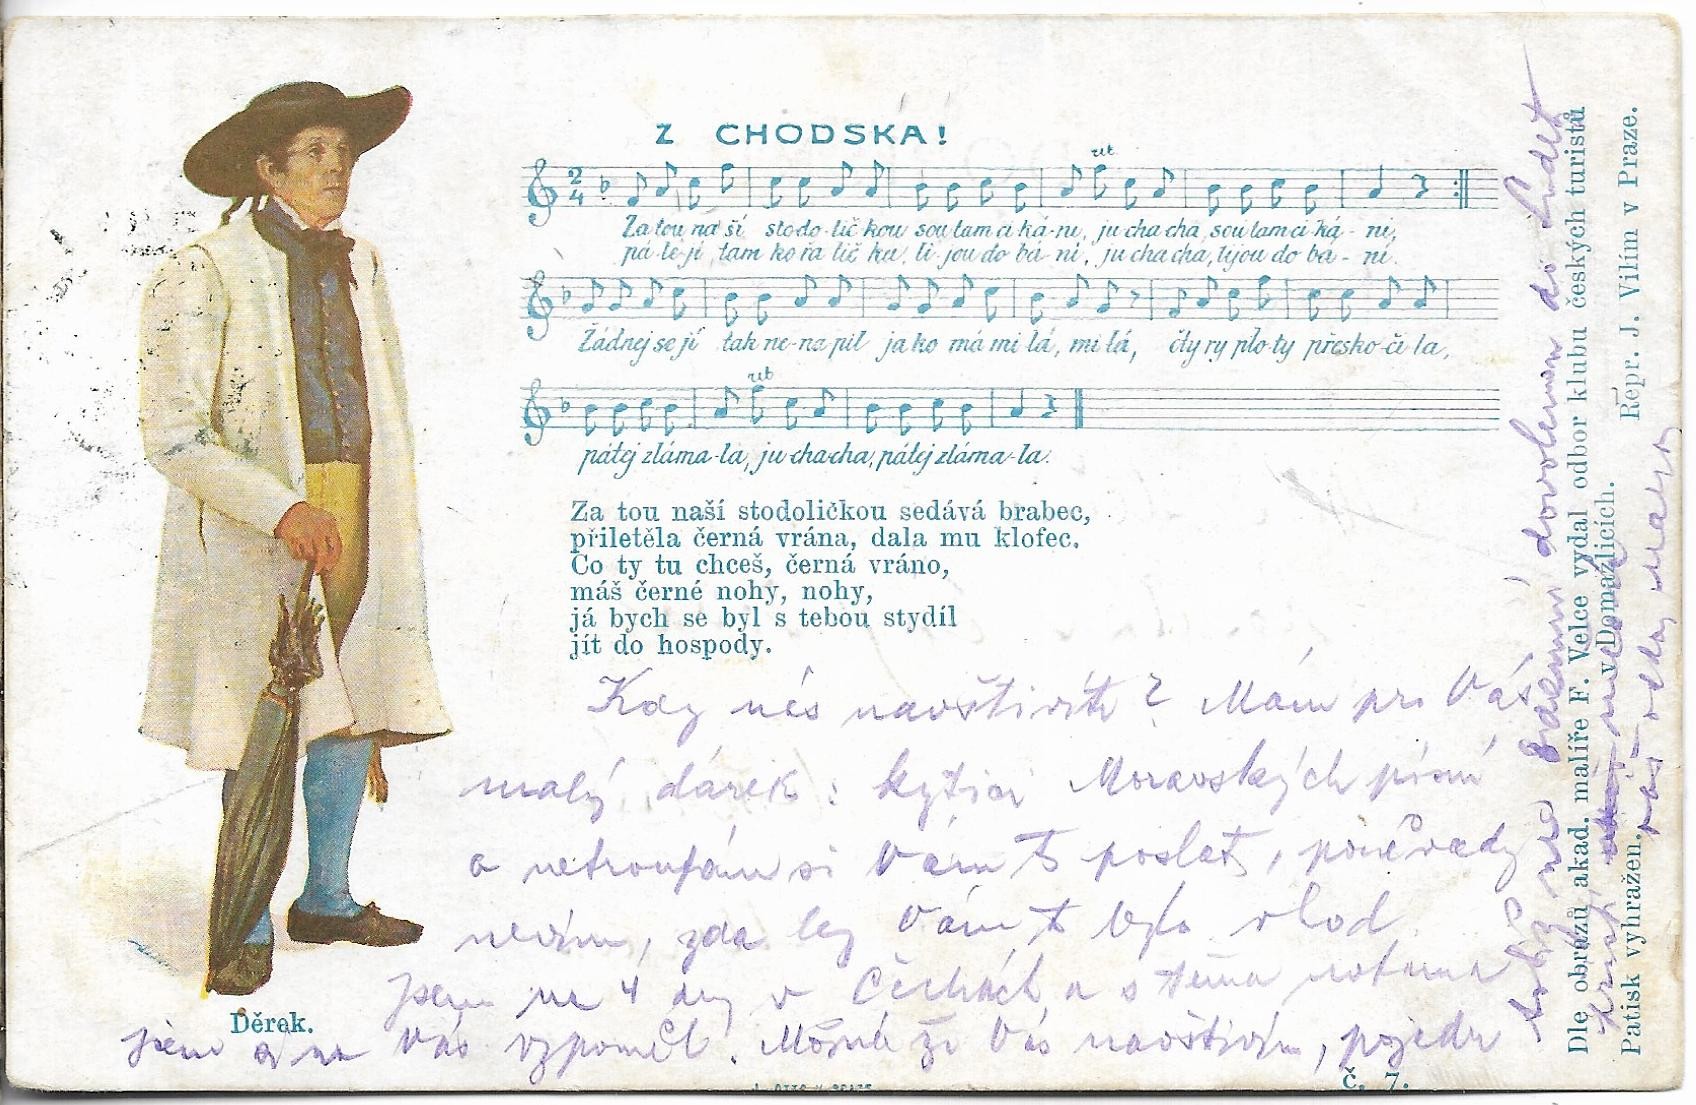 Z CHODSKA!
2
4
Za tou na ší stodo-lič kou sou tam ci ká-ni, ju cha cha, sou tam ci ká-ni,
na-le-ji tam ko řa lič ku, li jou do bá-ni, ju cha cha, lijou do bá-ni.
Žádnej se jí tak ne-na pil ja ko má mi lá, mi lá, čty ry plo-ty přesko-či la,
pátej zláma-la, ju cha-cha, pátej zláma-la.
Za tou naší stodoličkou sedává brabec,
přiletěla černá vrána, dala mu klofec.
Co ty tu chceš, černá vráno,
máš černé nohy, nohy,
já bych se byl s tebou stydíl
jít do hospody.
Kdy nás navštívíte? Mám pro Vás
malý dárek: kytici Moravských písní
a netroufám si Vám to poslat, poněvadž
nevím, zda by Vám to bylo vhod.
Jsem na 4 dny v Čechách a s těma notama
jsem si na Vás vzpoměl. Možná že Vás navštívím, pojedu
Děrek.
Č. 7.
Dle obrazů akad. malíře F. Velce vydal odbor klubu českých turistů
v Domažlicích.
Patisk vyhražen. Repr. J. Vilím v Praze.
dovolenou do